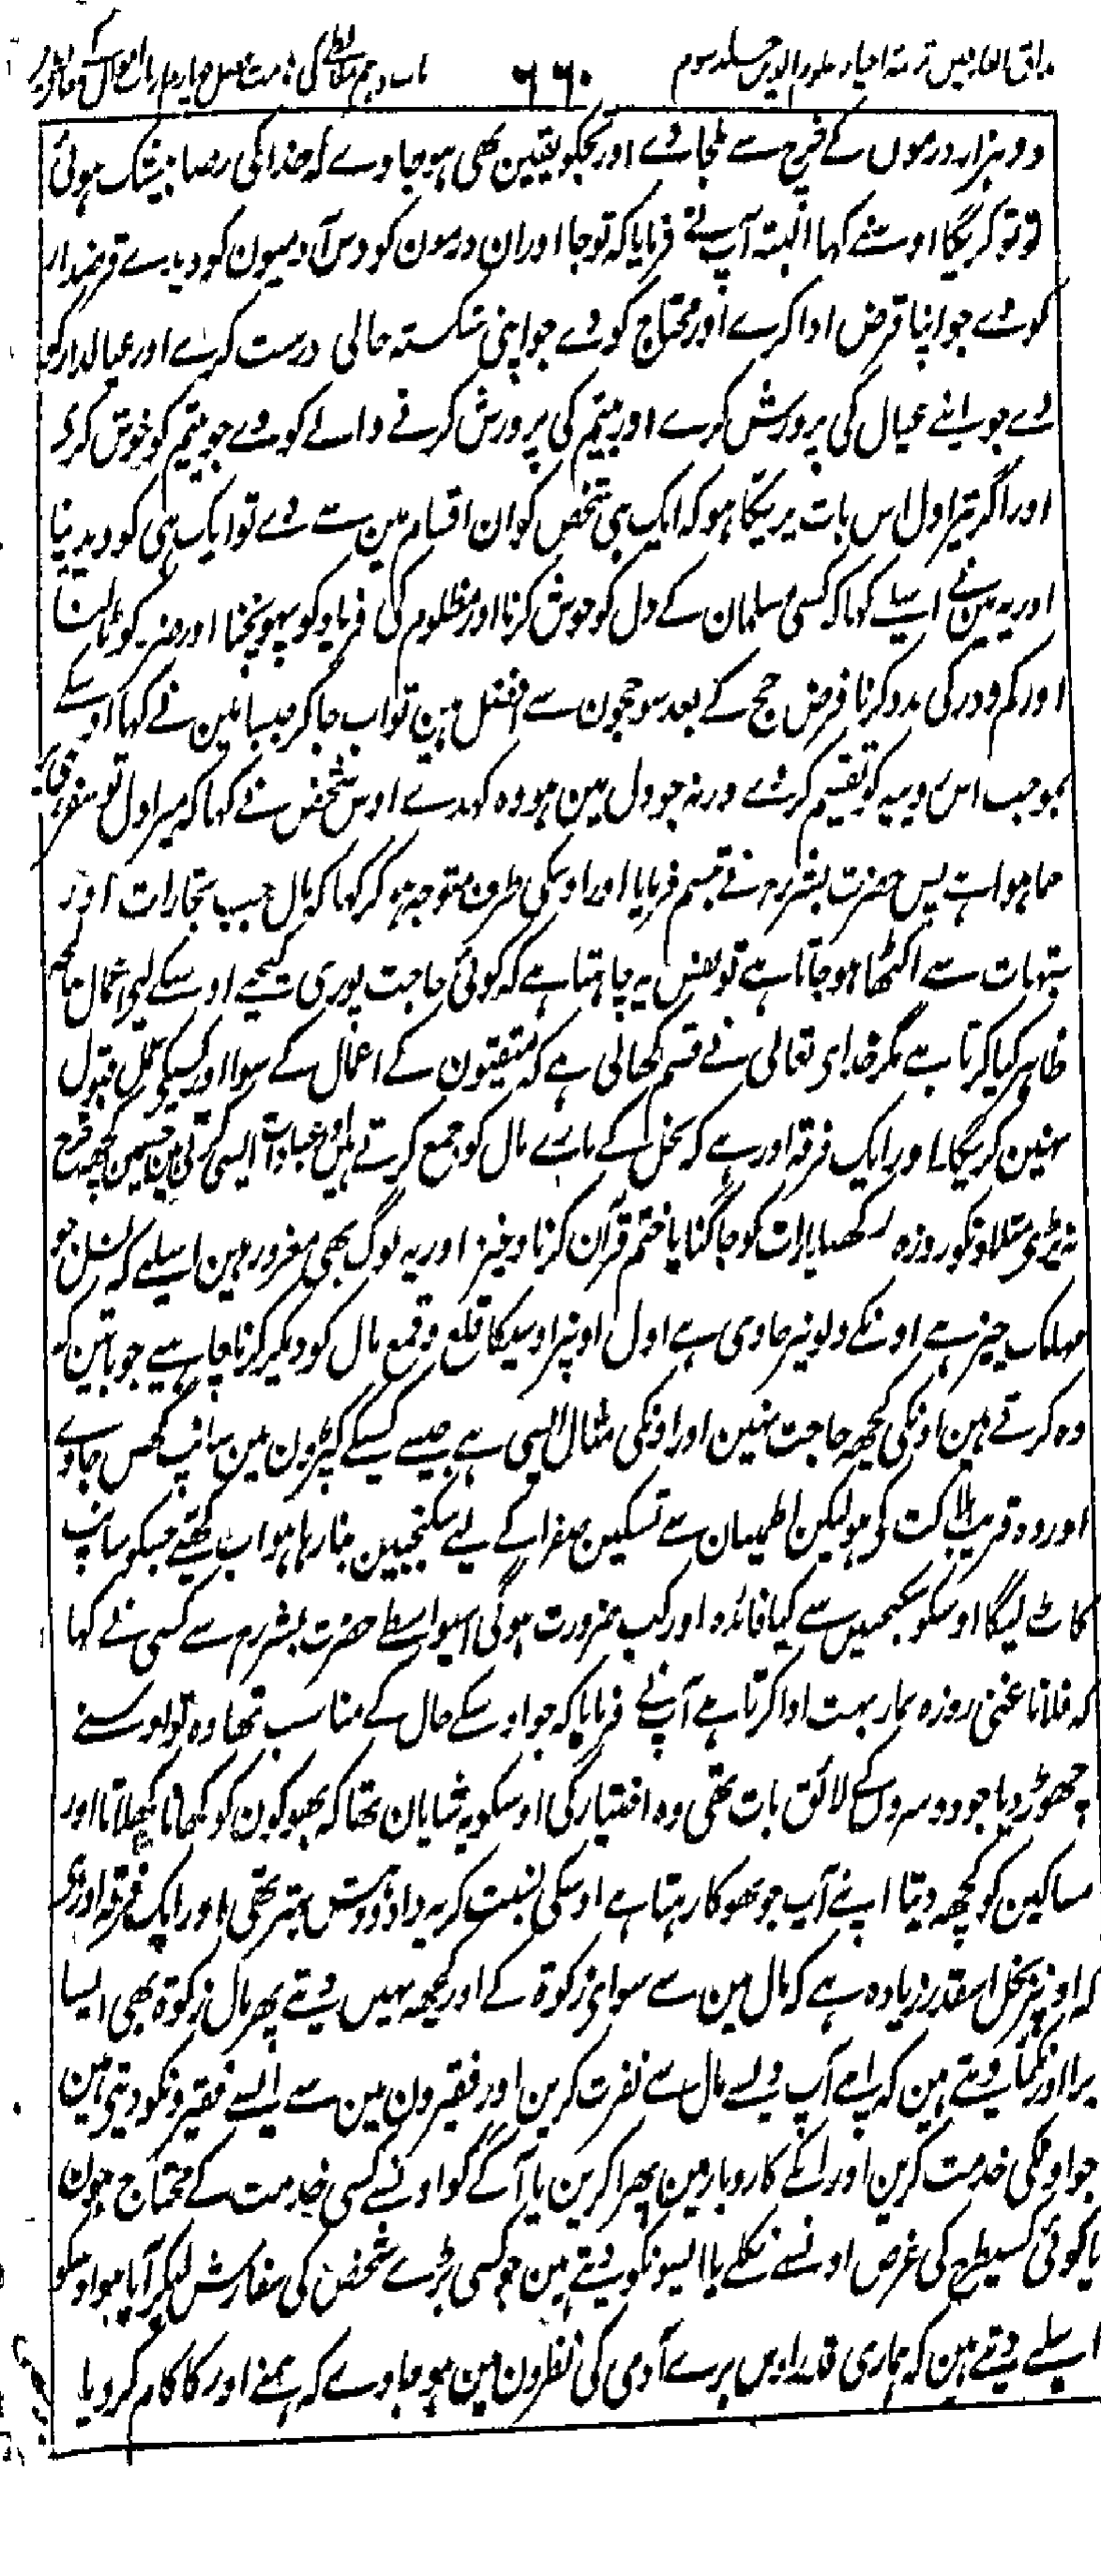 مذاق العارفین ترجمہ احیاء علوم الدین جلد سوم
۶۶۰
دو ہزار درموں کے خرچ سے ملجاوے اور تجکو یقین بھی ہو جاوے کہ خدا کی رضا بیشک ہوئی
تو تو کریگا اوسنے کہا البتہ آپ نے فرمایا کہ تو جا اور ان درمون کو دس آدمیون کو دیدے قرضدار
کو دے جو اپنا قرض ادا کرے اور محتاج کو دے جو اپنی شکستہ حالی درست کرے اور عیالدار کو
دے جو اپنے عیال کی پرورش کرے اور یتیم کی پرورش کرنے والے کو دے جو یتیم کو خوش کرے
اور اگر تیرا دل اس بات پر پکا ہو کہ ایک ہی شخص کو ان اقسام مین سے دے تو ایک ہی کو دیدینا
اور یہ مین نے اسلیے کہا کہ کسی مسلمان کے دل کو خوش کرنا اور مظلوم کی فریاد کو پہونچنا اور ضرر کو ٹالنا
اور کمزور کی مدد کرنا فرض حج کے بعد سو حجون سے افضل ہین تو اب جا کر جیسا مین نے کہا اوسکے
بموجب اس روپیہ کو تقسیم کر دے ورنہ جو دل مین ہو وہ کہدے اوس شخص نے کہا کہ میرا دل تو سفر ہی پر
جما ہوا ہے پس حضرت بشر رح نے تبسم فرمایا اور اوسکی طرف متوجہ ہو کر کہا کہ مال جب تجارات اور
شبہات سے اکٹھا ہو جاتا ہے تو نفس یہ چاہتا ہے کہ کوئی حاجت پوری کیجیے اوسکے لیے اعمال صالحہ
ظاہر کیا کرتا ہے مگر خدای تعالی نے قسم کھالی ہے کہ متقیون کے اعمال کے سوا اور کسیکے عمل قبول
نہین کریگا اور ایک فرقہ اور ہے کہ بخل کے مارے مال کو جمع کرتے ہین اور عبادات ایسی کرتے ہین جسمین کچھ خرچ
نہ پڑے مثلا دنکو روزہ رکھنا یا رات کو جاگنا یا ختم قرآن کرنا وغیرہ اور یہ لوگ بھی مغرور ہین اسلیے کہ بخل جو
مہلک چیز ہے اونکے دلونپر حاوی ہے اول اونپر اوسیکا قلع و قمع مال کو دیکر کرنا چاہیے جو باتین کہ
وہ کرتے ہین اونکی کچھ حاجت نہین اور اونکی مثال ایسی ہے جیسے کسیکے کپڑون مین سانپ گھس جاوے
اور وہ قریب ہلاکت کے ہو لیکن اطمینان سے تسکین صفرا کے لیے سکنجبین بنا رہا ہو اب کہیے جسکو سانپ
کاٹ لیگا اوسکو سکنجبین سے کیا فائدہ اور کب ضرورت ہوگی اسیواسطے حضرت بشر رح سے کسی نے کہا
کہ فلانا غنی روزہ نماز بہت ادا کرتا ہے آپنے فرمایا کہ جو اوسکے حال کے مناسب تھا وہ تو اوسنے
چھوڑ دیا جو دوسروں کے لائق بات تھی وہ اختیار کی اوسکو یہ شایان تھا کہ بھوکون کو کھانا کھلاتا اور
مساکین کو کچھ دیتا اپنے آپ جو بھوکا رہتا ہے اوسکی نسبت کر یہ داد و دہش بہتر تھی اور ایک فرقہ اور ہی
کہ اونپر بخل اسقدر زیادہ ہے کہ مال مین سے سوای زکوۃ کے اور کچھ نہیں دیتے پھر مال زکوۃ بھی ایسا
برا اور نکما دیتے ہین کہ اپنے آپ ویسے مال سے نفرت کرین اور فقیرون مین سے ایسے فقیرونکو دیتے ہین
جو اونکی خدمت کرین اور انکے کاروبار مین پھرا کرین یا آگے کو اونسے کسی خدمت کے محتاج ہون
یا کوئی کسیطرح کی غرض اونسے نکلے یا ایسونکو دیتے ہین جو کسی بڑے شخص کی سفارش لیکر آیا ہو اوسکو
اسلیے دیتے ہین کہ ہماری قدر اوس بڑے آدمی کی نظرون مین ہو جاوے کہ ہمنے اور کا کام کر دیا